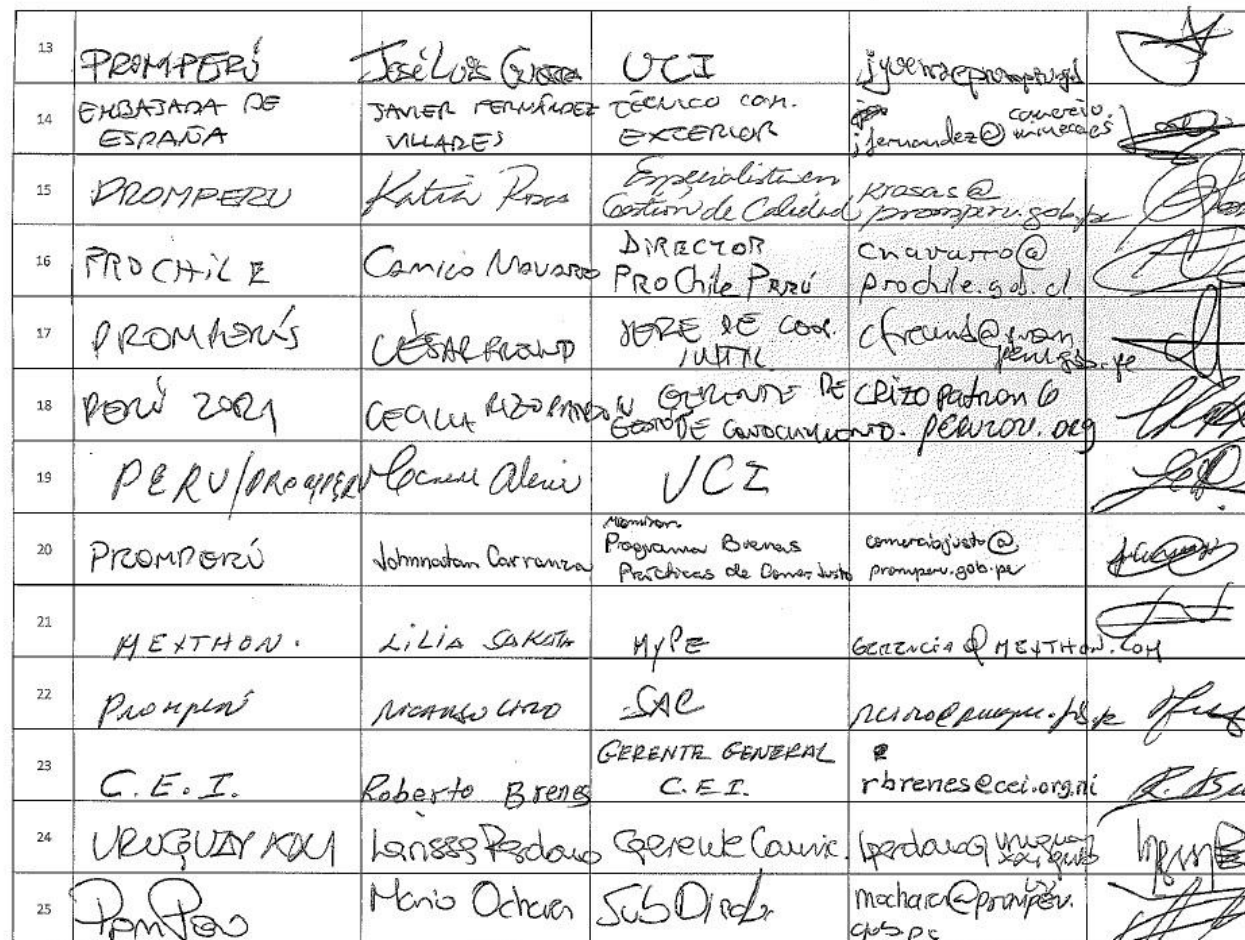 13 PROMPERÚ José Luis Guerra UCI
14 EMBAJADA DE ESPAÑA JAVIER FERNÁNDEZ VILLARES TÉCNICO COM. EXTERIOR jfernandez@comercio.mineco.es
15 PROMPERU Katia Rosas Especialista en Gestión de Calidad krosas@promperu.gob.pe
16 PROCHILE Camilo Navarro DIRECTOR PROChile PERÚ cnavarro@prochile.gob.cl
17 PROMPERÚ CÉSAR FREUND JEFE DE COOP. cfreund@promperu.gob.pe
18 PERÚ 2021 CECILIA RIZOPATRÓN GERENTE DE GESTIÓN DE CONOCIMIENTO.
19 PERU/PROMPERU UCI
20 PROMPERÚ Johnnatan Carranza Programa Buenas Prácticas de Comer. Justo comerciojusto@promperu.gob.pe
21 MEXTHON. LILIA SAKATA MYPE GERENCIA@MEXTHON.COM
22 Promperú SAC
23 C.E.I. Roberto Brenes GERENTE GENERAL C.E.I. rbrenes@cei.org.ni
24 URUGUAY XXI Larissa Perdomo Gerente
25 PromPerú Mario Ochara SubDirector mochara@promperu.gob.pe